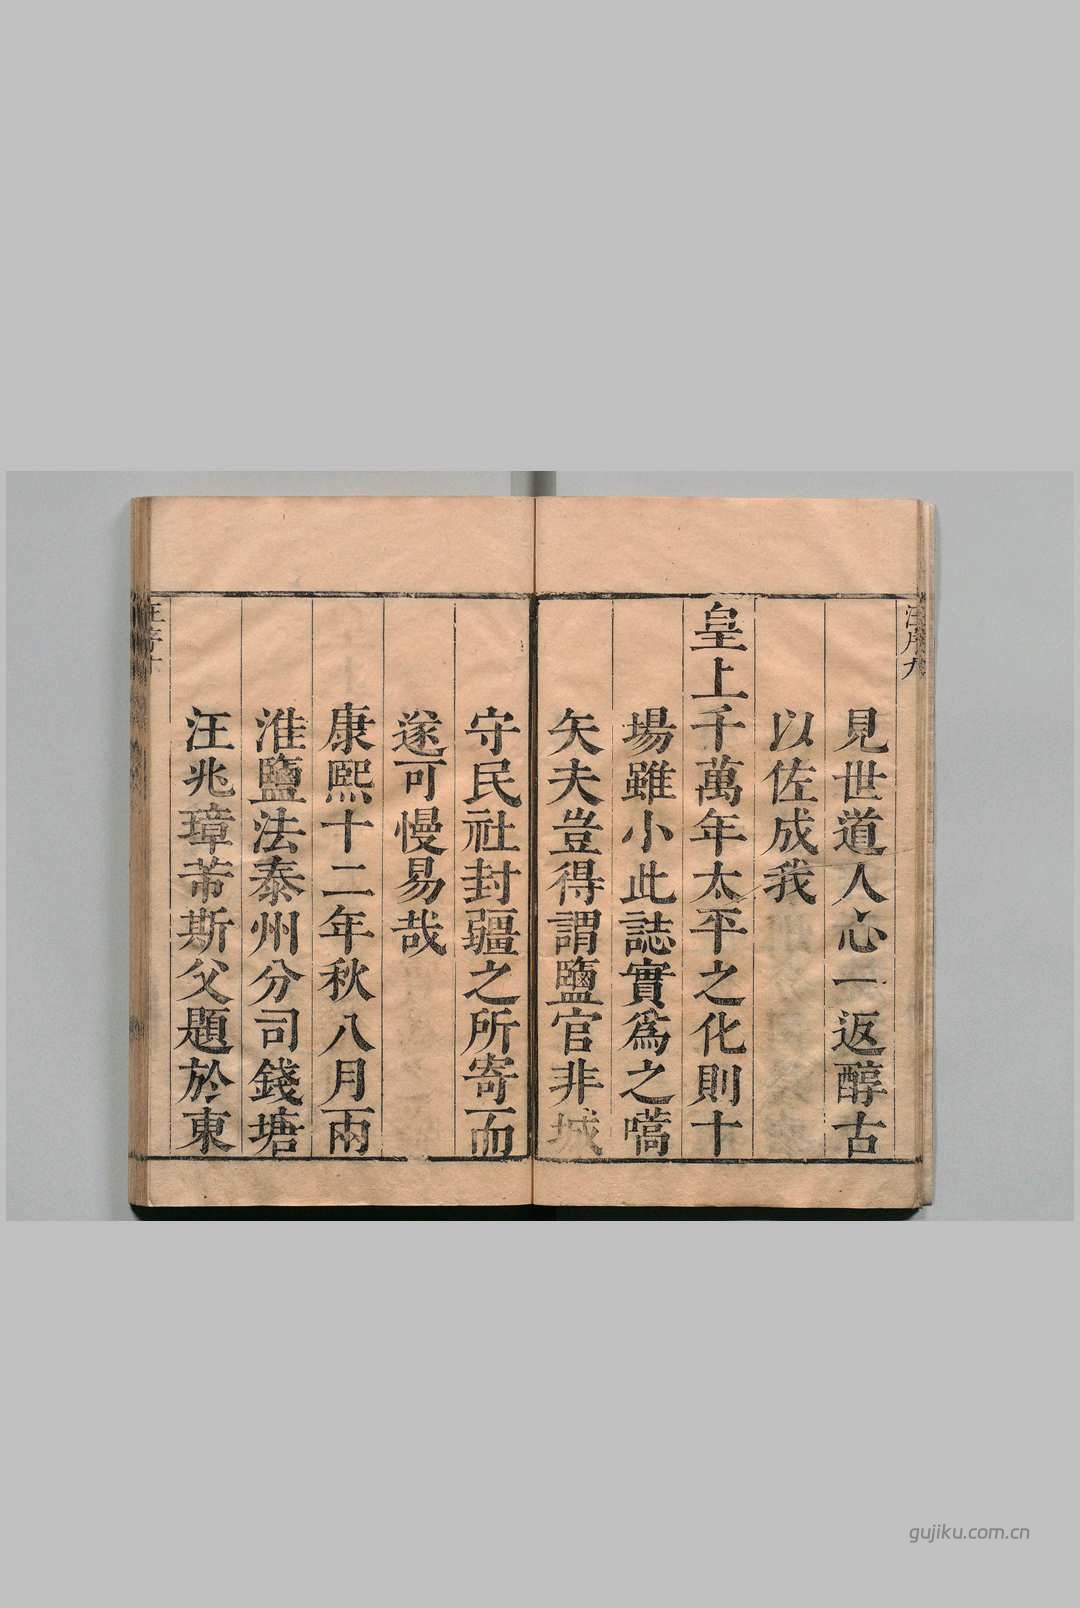 汪序九
見世道人心一返醇古
以佐成我
皇上千萬年太平之化則十
場雖小此誌實爲之嚆
矢夫豈得謂鹽官非城
守民社封疆之所寄而
遂可慢易哉
康熙十二年秋八月兩
淮鹽法泰州分司錢塘
汪兆璋芾斯父題於東
汪序十
gujiku.com.cn